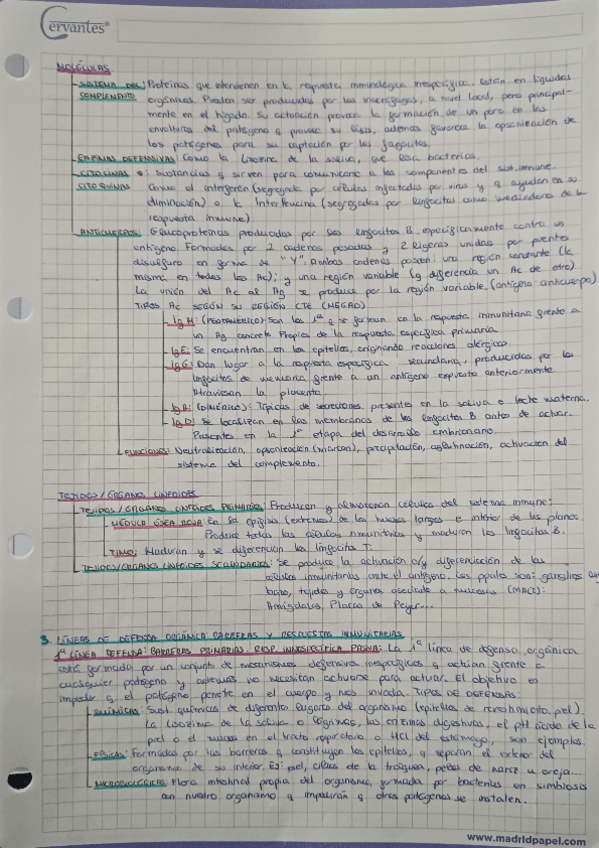 Cervantes®
MOLÉCULAS
SISTEMA DEL: Proteínas que intervienen en la respuesta inmunológica inespecífica. Están en líquidos
COMPLEMENTO orgánicos. Pueden ser producidas por los macrófagos, a nivel local, pero principal-
mente en el hígado. Su actuación provoca la formación de un poro en las
envolturas del patógeno y provoca su lisis, además favorece la opsonización de
los patógenos para su captación por los fagocitos.
ENZIMAS DEFENSIVAS Como la lisozima de la saliva, que lisa bacterias.
CITOCINAS o: sustancias q sirven para comunicarse a los componentes del sist. inmune.
CITOQUINAS Como el interferón (segregada por células infectadas por virus y q ayudan en su
eliminación) o la Interleucina (segregadas por linfocitos como mediadores de la
respuesta inmune).
ANTICUERPOS: Glucoproteínas producidas por los linfocitos B específicamente contra un
antígeno. Formados por 2 cadenas pesadas y 2 ligeras unidas por puentes
disulfuro en forma de "Y". Ambas cadenas poseen: una región constante (la
misma en todos los Ac); y una región variable (q diferencia un Ac de otro)
La unión del Ac al Ag se produce por la región variable. (antígeno-anticuerpo)
TIPOS Ac SEGÚN SU REGIÓN CTE (MEGAD)
Ig M: (PENTAMÉRICO): Son los 1os q se forman en la respuesta inmunitaria frente a
un Ag concreto. Propios de la respuesta específica primaria
Ig E: Se encuentran en los epitelios, originando reacciones alérgicas.
Ig G: Dan lugar a la respuesta específica secundaria, producidas por los
linfocitos de memoria frente a un antígeno expuesto anteriormente
Atraviesan la placenta.
Ig A: (DIMÉRICO): Típicas de secreciones, presentes en la saliva o leche materna.
Ig D: Se localizan en las membranas de los linfocitos B antes de actuar.
Presentes en la 1ª etapa del desarrollo embrionario.
FUNCIONES: Neutralización, opsonización (marcan), precipitación, aglutinación, activación del
sistema del complemento.
TEJIDOS/ÓRGANOS LINFOIDES
TEJIDOS/ÓRGANOS LINFOIDES PRIMARIOS: Producen y almacenan células del sistema inmune:
MÉDULA ÓSEA ROJA: En la epífisis (extremos) de los huesos largos e interior de los planos.
Produce todas las células inmunitarias y maduran los linfocitos B.
TIMO: Maduran y se diferencian los linfocitos T.
TEJIDOS/ÓRGANOS LINFOIDES SECUNDARIOS: Se produce la activación o/y diferenciación de las
células inmunitarias ante el antígeno. Los ppales son: ganglios
bazo, tejidos y órganos asociado a mucosas (MALT):
Amígdalas, Placas de Peyer...
3. LÍNEAS DE DEFENSA ORGÁNICA: BARRERAS Y RESPUESTAS INMUNITARIAS
1ª LÍNEA DEFENSA: BARRERAS PRIMARIAS. RESP. INNESPECÍFICA PASIVA: La 1ª línea de defensa orgánica
está formada por un conjunto de mecanismos defensivos inespecíficos q actúan frente a
cualquier patógeno y además no necesitan activarse para actuar. El objetivo es
impedir q el patógeno penetre en el cuerpo y nos invada. TIPOS DE DEFENSAS:
QUÍMICAS: Sust. químicas de diferentes lugares del organismo (epitelios de revestimiento, piel).
La lisozima de la saliva o lágrimas, las enzimas digestivas, el pH ácido de la
piel o el moco en el tracto respiratorio o HCl del estómago, son ejemplos.
FÍSICAS: Formadas por las barreras q constituyen los epitelios, q separan el exterior del
organismo de su interior. Ej: piel, cilios de la tráquea, pelos de nariz u oreja...
MICROBIOLÓGICAS: Flora intestinal propia del organismo, formada por bacterias en simbiosis
con nuestro organismo q impedirán q otros patógenos se instalen.
www.madridpapel.com